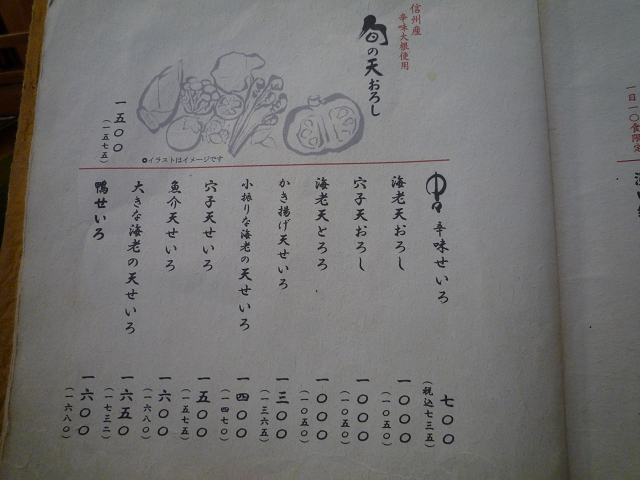 信州産
辛味大根使用
旬の天おろし
一五〇〇
(一五七五)
✿イラストはイメージです
辛味せいろ
七〇〇
(税込七三五)
海老天おろし
一〇〇〇
(一〇五〇)
穴子天おろし
一〇〇〇
(一〇五〇)
海老天とろろ
一〇〇〇
(一〇五〇)
かき揚げ天せいろ
一三〇〇
(一三六五)
小振りな海老の天せいろ
一四〇〇
(一四七〇)
穴子天せいろ
一五〇〇
(一五七五)
魚介天せいろ
一六〇〇
(一六八〇)
大きな海老の天せいろ
一六五〇
(一七三二)
鴨せいろ
一六〇〇
(一六八〇)
一日一〇食限定